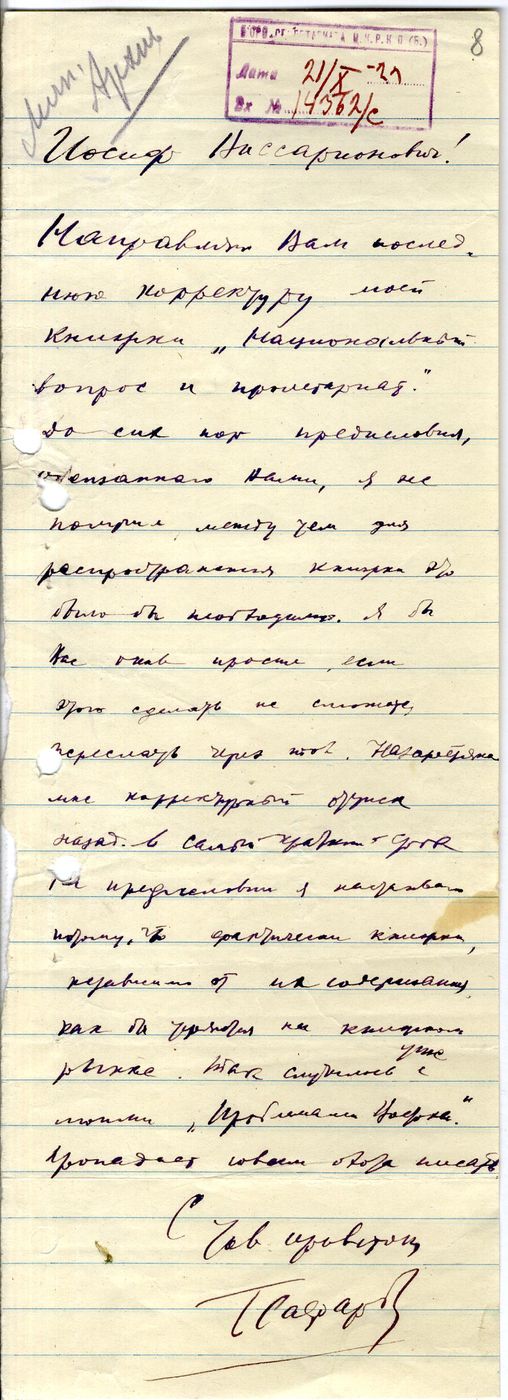 8
Архив
БЮРО СЕКРЕТАРИАТА Ц.К.Р.К.П.(Б.)
Дата 21/X -22
Вх № 14362/с
Иосиф Виссарионович!
Направляю Вам послед-
нюю корректуру моей
книжки „Национальный
вопрос и пролетариат."
До сих пор предисловия,
обещанного Вами, я не
получил, между тем для
распространения книжки это
было бы необходимо. Я бы
Вас очень просил, если
этого сделать не сможете,
переслать через тов. Назаретяна
мне корректурный оттиск
назад в самый краткий срок
На предисловии я настаиваю
потому, что фактически книжки,
независимо от их содержания,
как бы теряются на книжном
рынке. Так случилось уже с
моими „Проблемами Востока".
Пропадает совсем охота писать
С
тов. приветом
Г Сафаров